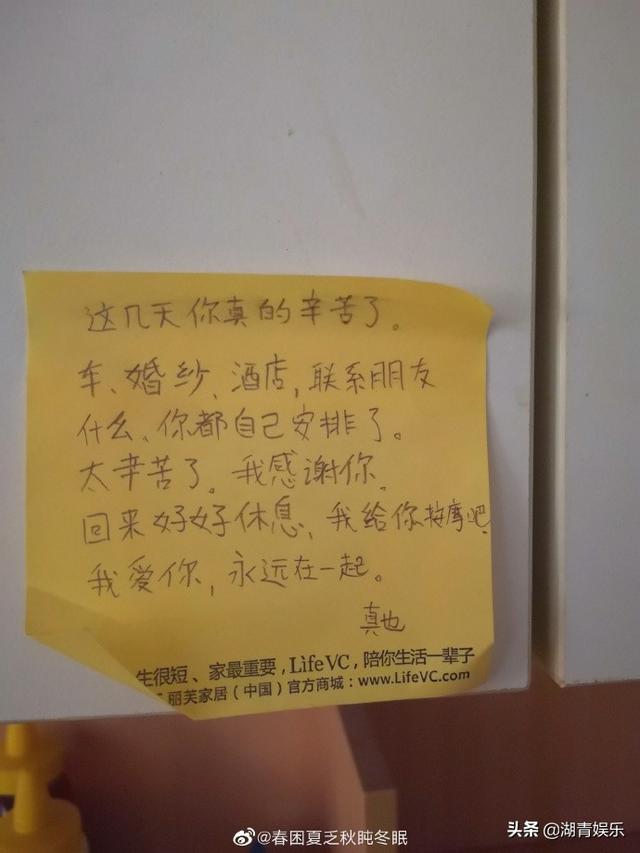 这几天你真的辛苦了。
车、婚纱、酒店,联系朋友
什么、你都自己安排了。
太辛苦了。我感谢你、
回来好好休息、我给你按摩吧、
我爱你,永远在一起。
真也
生很短、家最重要,LifeVC,陪你生活一辈子
丽芙家居(中国)官方商城:www.LifeVC.com
@春困夏乏秋盹冬眠
头条 @湖青娱乐